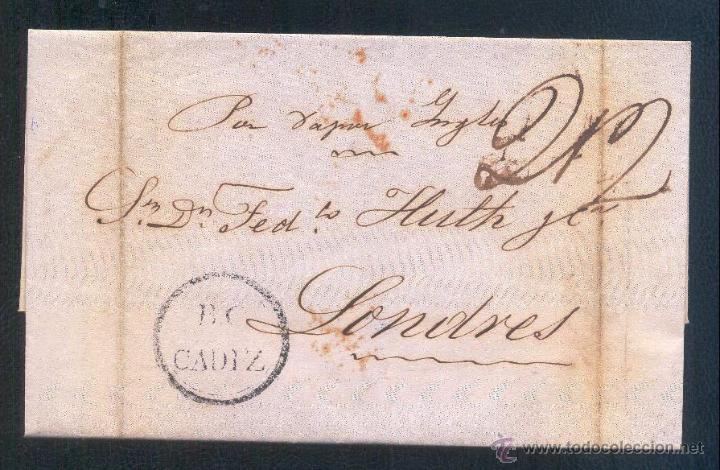 Por vapor Ingles
2/2
Sr. Dn. Fedco. Huth y Ca
Londres
CADIZ
© www.todocoleccion.net